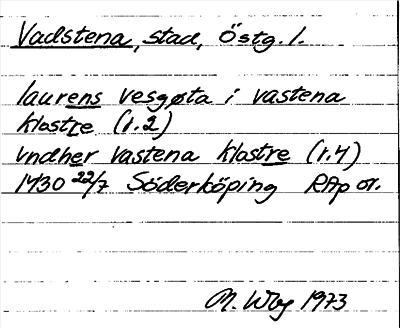 Vadstena, stad, Östg. l.
laurens vesgøta i vastena
klostre (r.2)
vndher vastena klostre (r.4)
1430 22/7 Söderköping RAp or.
M. Wbg 1973